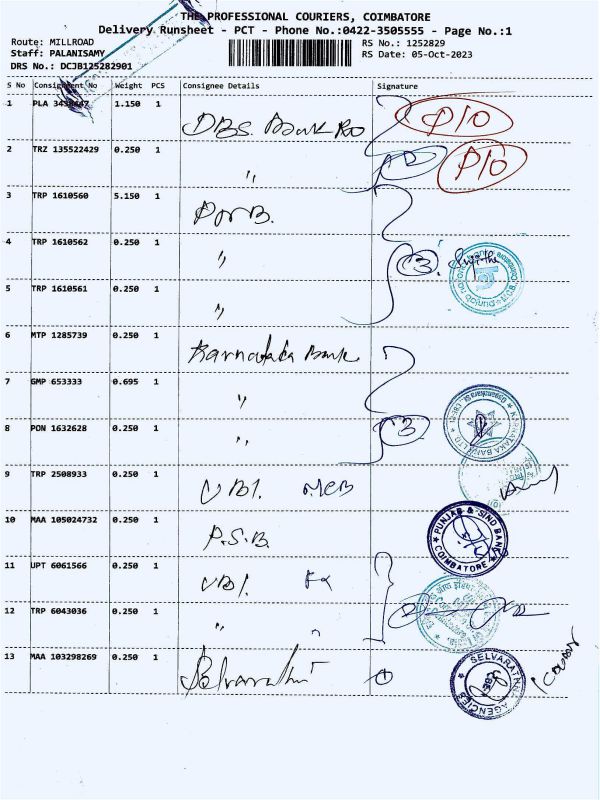 THE PROFESSIONAL COURIERS, COIMBATORE
Delivery Runsheet - PCT - Phone No.:0422-3505555 - Page No.:1
Route: MILLROAD RS No.: 1252829
Staff: PALANISAMY RS Date: 05-Oct-2023
DRS No.: DCJB125282901
S No Consignment No Weight PCS Consignee Details Signature
1 PLA 3438647 1.150 1 DBS. Bank RO P/O
2 TRZ 135522429 0.250 1 〃 P/O
3 TRP 1610560 5.150 1 PNB.
4 TRP 1610562 0.250 1 〃 (3).
5 TRP 1610561 0.250 1 〃
6 MTP 1285739 0.250 1 Karnataka Bank
7 GMP 653333 0.695 1 〃
8 PON 1632628 0.250 1 〃 3
KARNATAKA BANK LTD
9 TRP 2508933 0.250 1 UBI. MCB
10 MAA 105024732 0.250 1 P.S.B.
PUNJAB & SIND BANK COIMBATORE
11 UPT 6061566 0.250 1 UBI.
12 TRP 6043036 0.250 1 〃 〃
13 MAA 103298269 0.250 1 Selvarathn
SELVARATHNA AGENCIES CBE